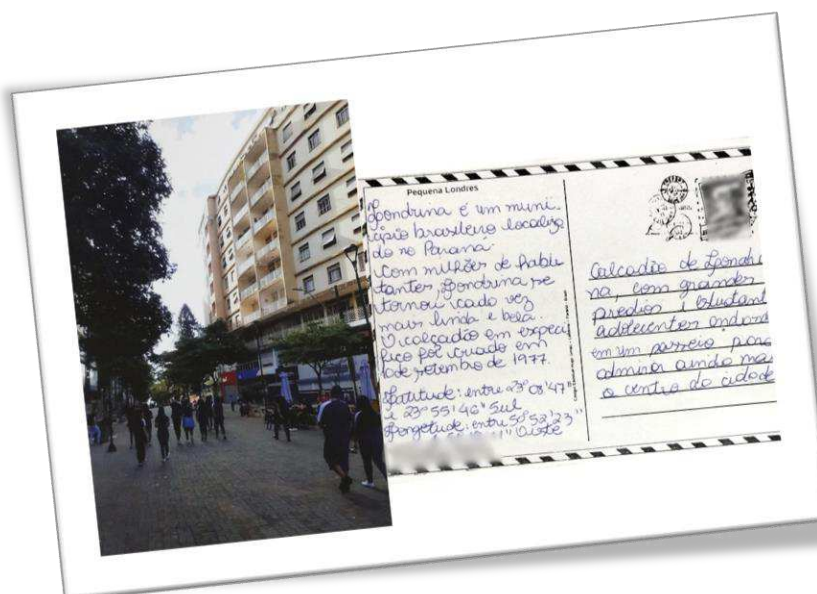 Pequena Londres
Londrina é um muni-
cipio brasileiro localiza
do no Paraná.
Com milhões de habi
tantes Londrina se
tornou cada vez
mais linda e bela.
O calçadão em especi
fico foi criado em
de setembro de 1977.
Latitude: entre 23°08'47"
e 23°55'46" Sul
Longetude: entre 50°52'23"
Oeste
Calçadão de Londri
na, com grandes
predios
adolecentes andand
em um passeio para
admirar ainda mai
o centro da cidade